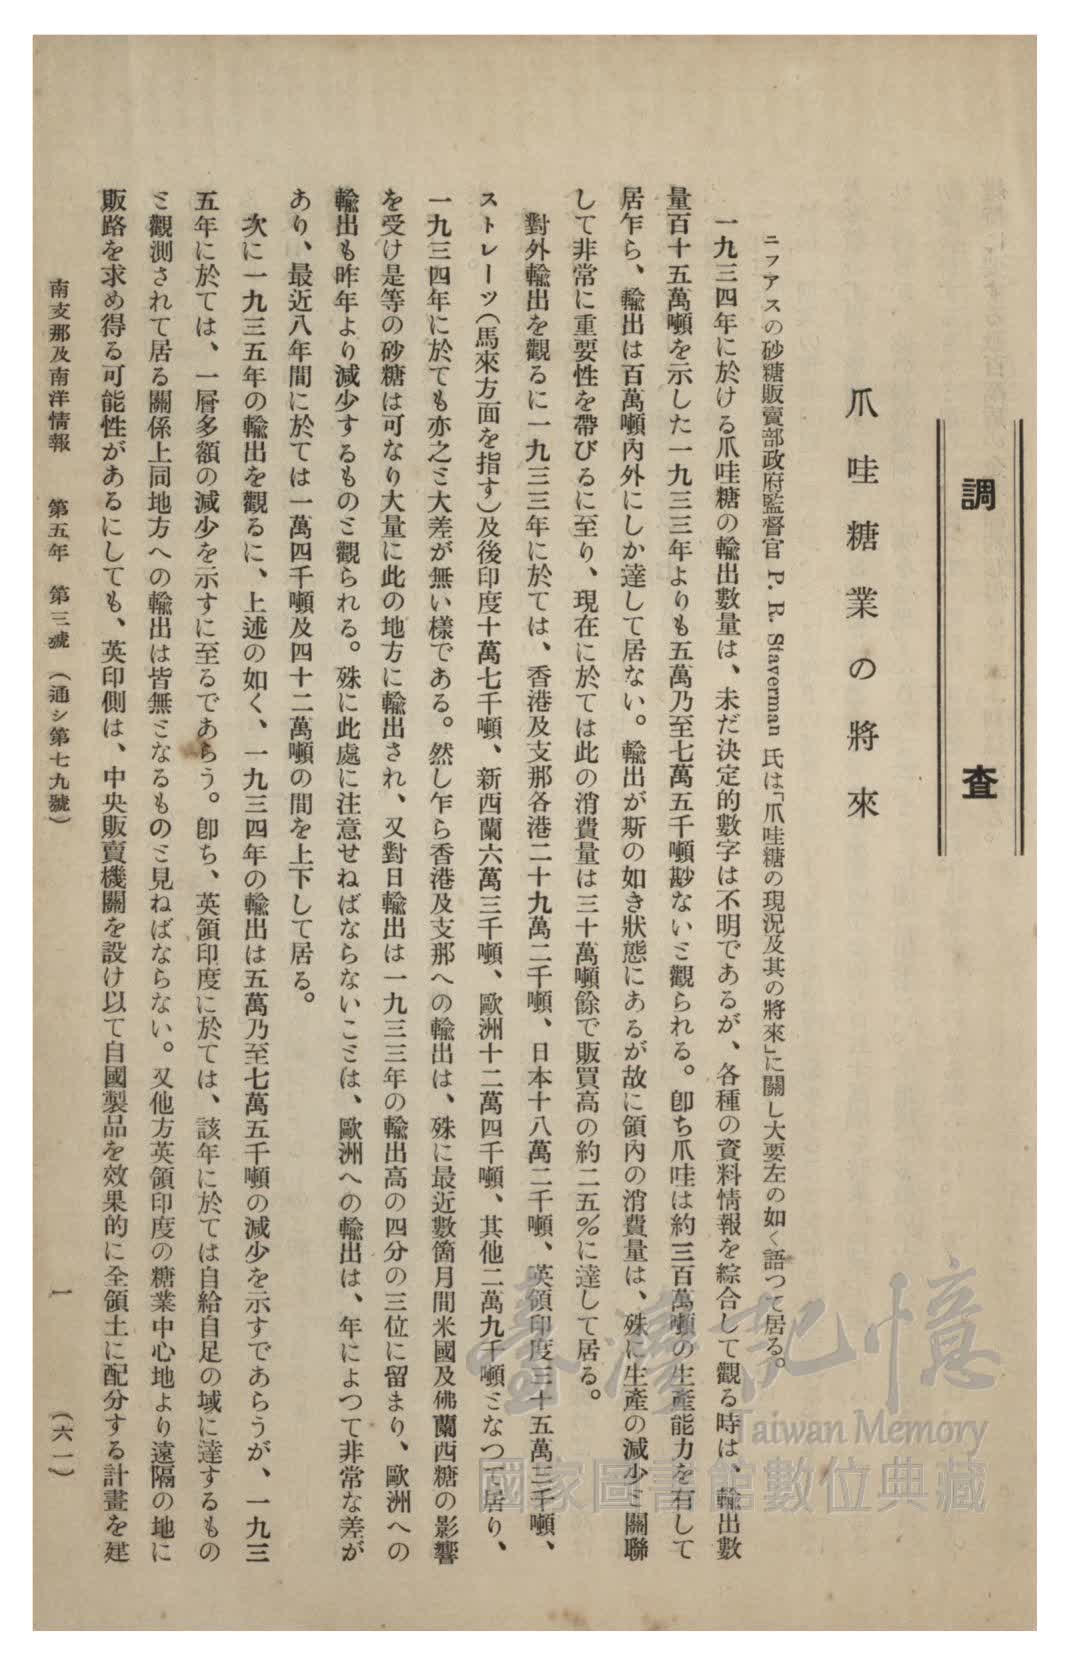 調査
爪哇糖業の將來
ニフアスの砂糖販賣部政府監督官 P. R. Staverman 氏は「爪哇糖の現況及其の將來」に關し大要左の如く語つて居る。
一九三四年に於ける爪哇糖の輸出數量は、未だ決定的數字は不明であるが、各種の資料情報を綜合して觀る時は、輸出數
量百十五萬噸を示した一九三三年よりも五萬乃至七萬五千噸尠ないミ觀られる。卽ち爪哇は約三百萬噸の生產能力を有して
居乍ら、輸出は百萬噸內外にしか達して居ない。輸出が斯の如き狀態にあるが故に領內の消費量は、殊に生產の減少ミ關聯
して非常に重要性を帶びるに至り、現在に於ては此の消費量は三十萬噸餘で販買高の約二五％に達して居る。
對外輸出を觀るに一九三三年に於ては、香港及支那各港二十九萬二千噸、日本十八萬二千噸、英領印度三十五萬三千噸、
ストレーツ（馬來方面を指す）及後印度十萬七千噸、新西蘭六萬三千噸、歐洲十二萬四千噸、其他二萬九千噸ミなつて居り、
一九三四年に於ても亦之ミ大差が無い樣である。然し乍ら香港及支那への輸出は、殊に最近數箇月間米國及佛蘭西糖の影響
を受け是等の砂糖は可なり大量に此の地方に輸出され、又對日輸出は一九三三年の輸出高の四分の三位に留まり、歐洲への
輸出も昨年より減少するものミ觀られる。殊に此處に注意せねばならないこミは、歐洲への輸出は、年によつて非常な差が
あり、最近八年間に於ては一萬四千噸及四十二萬噸の間を上下して居る。
次に一九三五年の輸出を觀るに、上述の如く、一九三四年の輸出は五萬乃至七萬五千噸の減少を示すであらうが、一九三
五年に於ては、一層多額の減少を示すに至るであらう。卽ち、英領印度に於ては、該年に於ては自給自足の域に達するもの
ミ觀測されて居る關係上同地方への輸出は皆無ミなるものミ見ねばならない。又他方英領印度の糖業中心地より遠隔の地に
販路を求め得る可能性があるにしても、英印側は、中央販賣機關を設け以て自國製品を效果的に全領土に配分する計畫を建
南支那及南洋情報　第五年　第三號　（通シ第七九號）　一　（六一）
臺灣記憶
Taiwan Memory
國家圖書館數位典藏